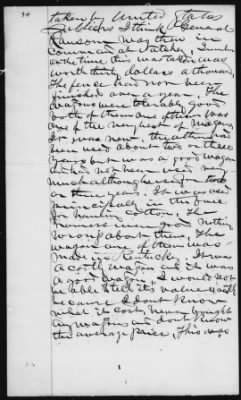 taken by United States
Soldiers I think General
Ransom was then in
Command at Natchez, Lumber
at the time this was taken was
worth thirty dollars a thousand,
The fence had now been
finished over a year. The
wagons were tolerably good
both of them one of them was
one of the very best of wagons
for was new the other had
been used about two or three
years but was a good wagon
had not been used very
much although he had had
or three years. It was used
principally in the place
for hauling cotton. The
harness was good nothing
wrong about them, The
wagon one of them was
made in Kentucky. It was
a costly wagon and it was
a good one. I would not
be able to tell its value
because I dont know
what it cost, never bought
any wagons and dont know
the average price, This was